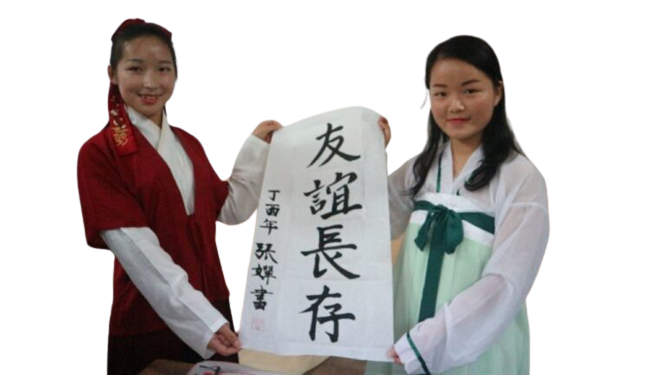 友誼長存
丁酉年 张婵書